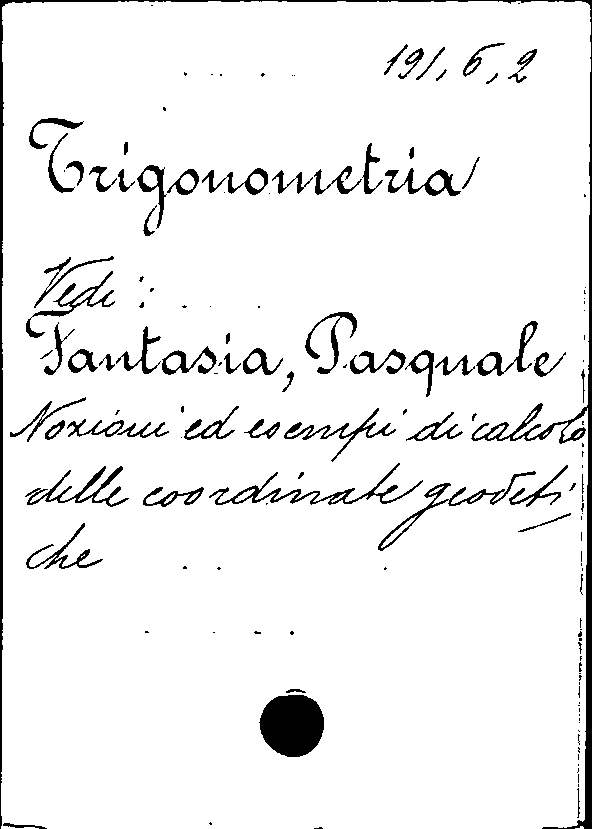 191, 6, 2
Trigonometria
Vedi:
Fantasia, Pasquale
Nozioni ed esempi di calcolo
delle coordinate geodeti
che